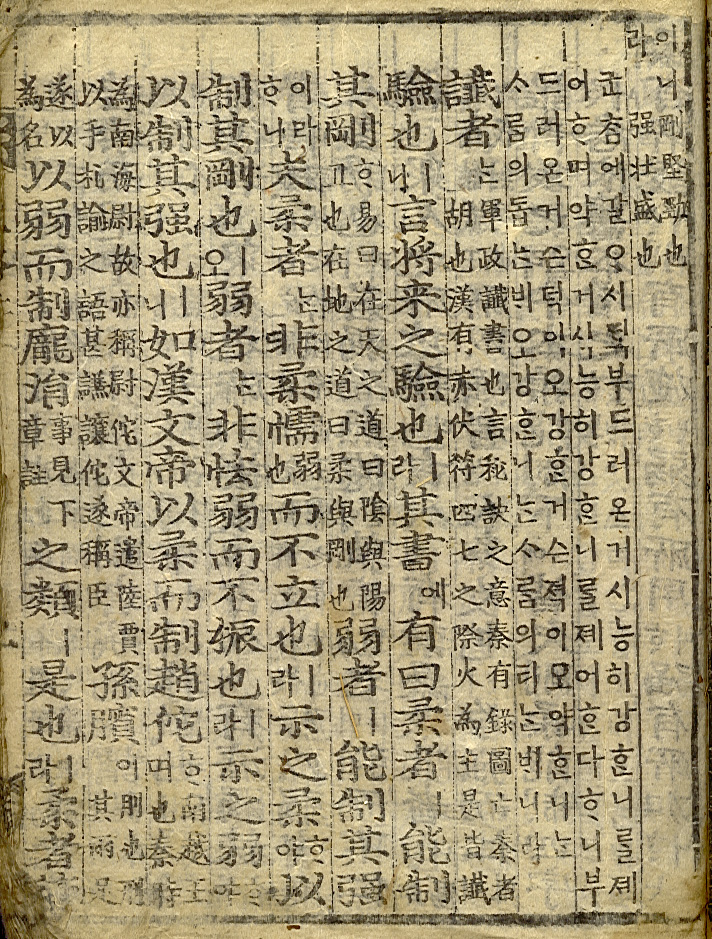 이니剛堅勁也
라强壯盛也
군참에ᄀᆞᆯᄋᆞ시ᄃᆡ부드러온거시능히강ᄒᆞᆫ니ᄅᆞᆯ졔
어ᄒᆞ며약ᄒᆞᆫ거시능히강ᄒᆞᆫ니ᄅᆞᆯ졔어ᄒᆞᆫ다ᄒᆞ니부
드러온거슨덕이오강ᄒᆞᆫ거슨젹이오약ᄒᆞᆫ니ᄂᆞᆫ
ᄉᆞᄅᆞᆷ의돕ᄂᆞᆫᄇᆡ오강ᄒᆞᆫ니ᄂᆞᆫᄉᆞᄅᆞᆷ의티ᄂᆞᆫᄇᆡ니라
讖者ᄂᆞᆫ軍政讖書也言秘訣之意秦有錄圖亡秦者胡也漢有赤伏符四七之際火為主是皆讖
驗也ㅣ니言將来之驗也ㅣ라其書에有曰柔者ㅣ能制
其剛ᄒᆞ고易曰在天之道曰陰與陽也在地之道曰柔與剛也弱者ㅣ能制其强
이라ᄒᆞ니夫柔者ᄂᆞᆫ非柔懦弱也而不立也ㅣ라示之柔ᄒᆞ야以
制其剛也ㅣ오弱者ᄂᆞᆫ非怯弱而不振也ㅣ라示之弱ᄒᆞ야
以制其强也ㅣ니如漢文帝以柔而制趙佗ᄒᆞ며南越王也秦時
為南海尉故亦稱尉佗文帝遣陸賈以手札諭之語甚謙讓佗遂稱臣孫臏이刖也刖其兩足
遂以為名以弱而制龐涓事見下章註之類ㅣ是也ㅣ라柔者